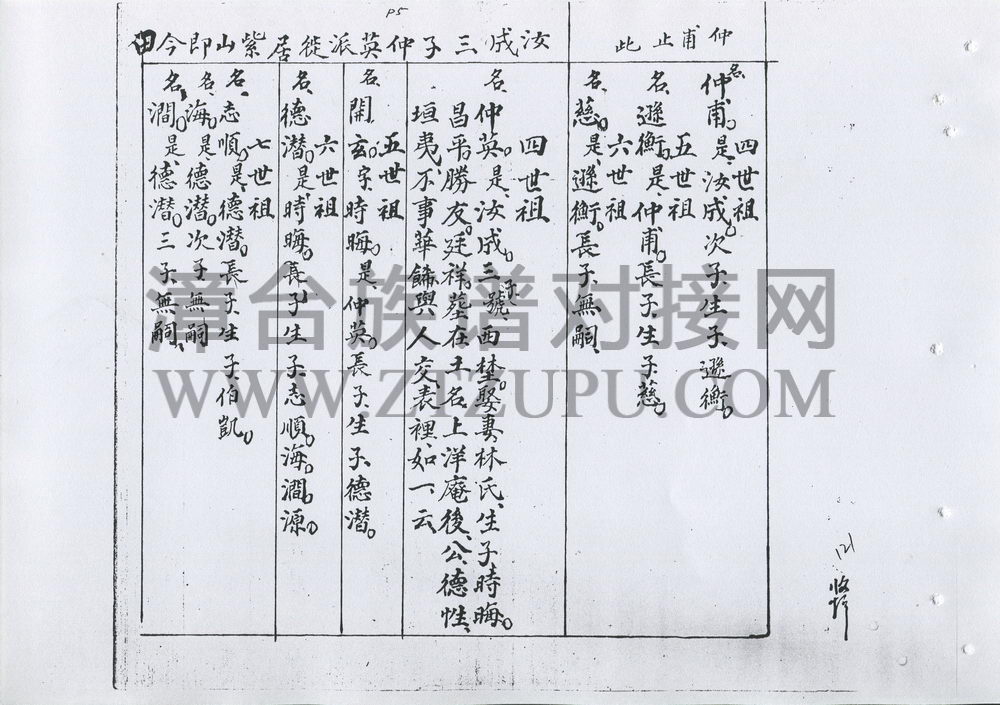 P5
仲甫止此
汝成三子仲英派徙居紫山即今田
四世祖
名仲甫是汝成次子生子遜衡
五世祖
名遜衡是仲甫長子生子慈
六世祖
名慈是遜衡長子無嗣
四世祖
名仲英是汝成三子號西埜娶妻林氏生子時晦
昌平勝友廷祥墓在土名上洋庵後公德性
垣夷不事華餙與人交表裡如一云
五世祖
名開玄字時晦是仲英長子生子德潛
六世祖
名德潜是時晦長子生子志順海澗源
七世祖
名志順是德潜長子生子伯凱
名海是德潜次子無嗣
名澗是德潜三子無嗣
漳台族谱对接网
WWW.ZTZUPU.COM
121